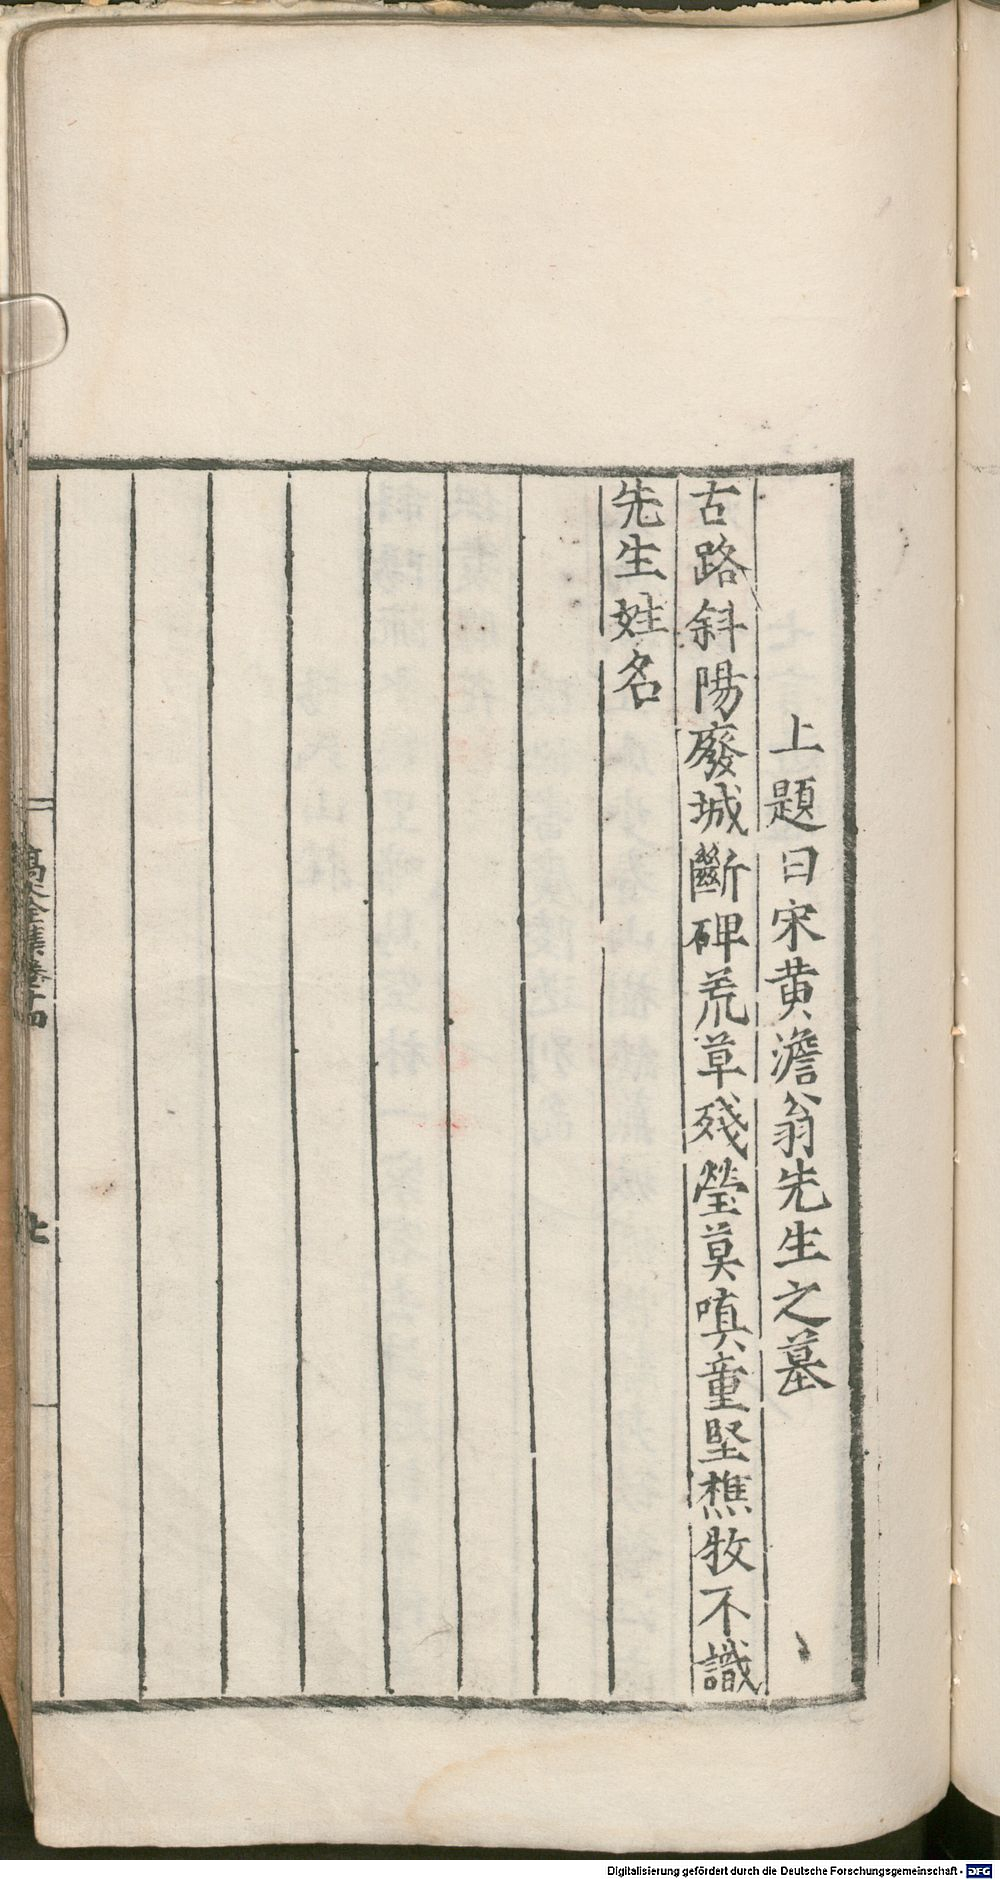 上題曰宋黄澹翁先生之墓
古路斜陽廢城斷碑荒草殘瑩莫嗔童堅樵牧不識
先生姓名
全集卷十四
七
Digitalisierung gefördert durch die Deutsche Forschungsgemeinschaft - DFG